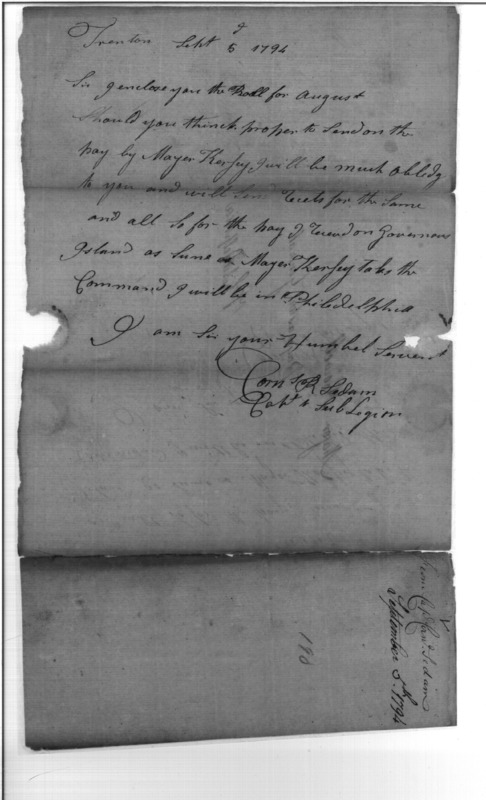 Trenton Sept 5 d 1794
Sir I enclose you the Roll for August
Should you think proper to Send on the
pay by Mayer Kersey I will be much obledg
to you and will Send Recets for the Same
and all so for the pay I Recevd on Governous
Island as Sune as Mayer Kersey takes the
Command I will be in Philidelphia
I am Sir your Humbel Servent
Corns R Sedam
Capt 4 Sub Legion
from Capt Corns Sedam
September 5th 1794
190